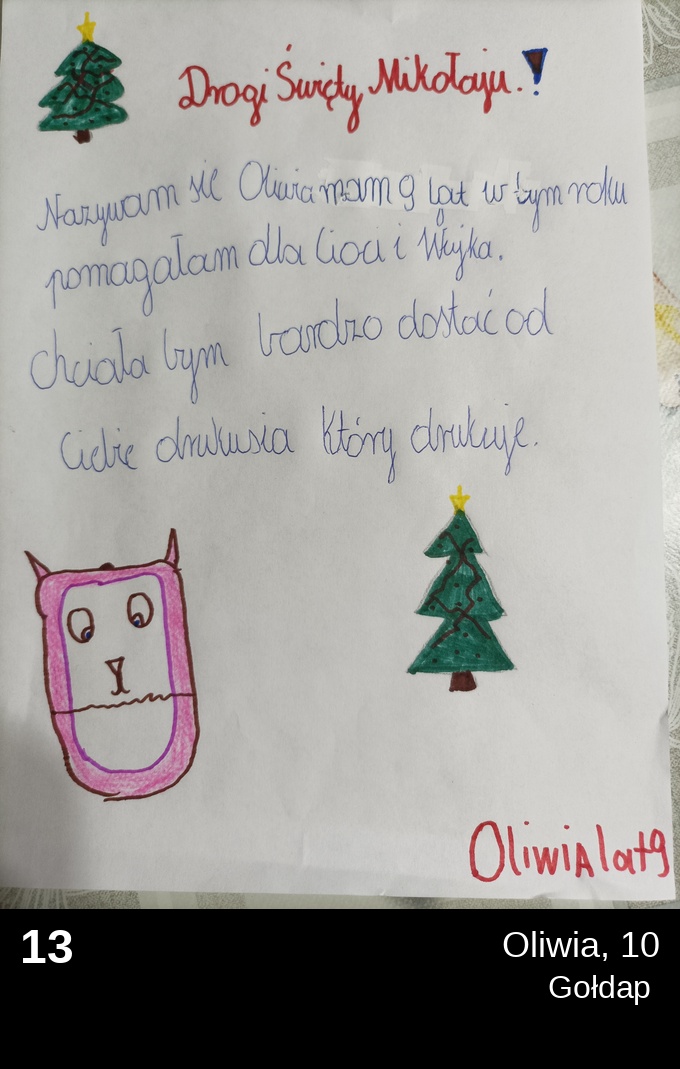 Drogi Święty Mikołaju.!
Nazywam się Oliwia mam 9 lat w tym roku
pomagałam dla Cioci i Wujka.
Chciała bym bardzo dostać od
Ciebie drukusia który drukuje.
OliwiA lat 9
13
Oliwia, 10
Gołdap